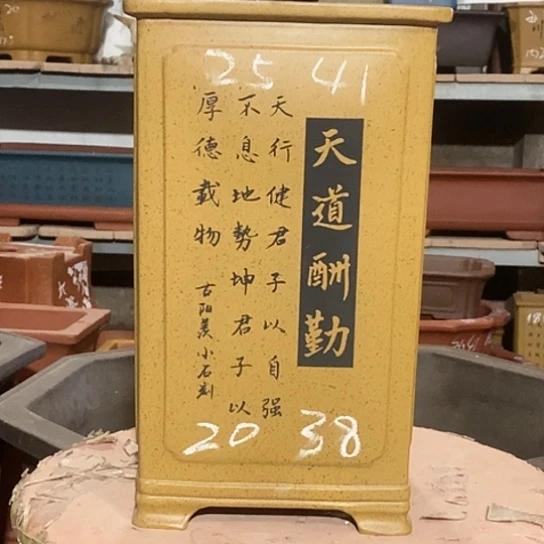 25 41
天道酬勤
天行健君子以自强
不息地势坤君子以
厚德载物
小石刻
20 38